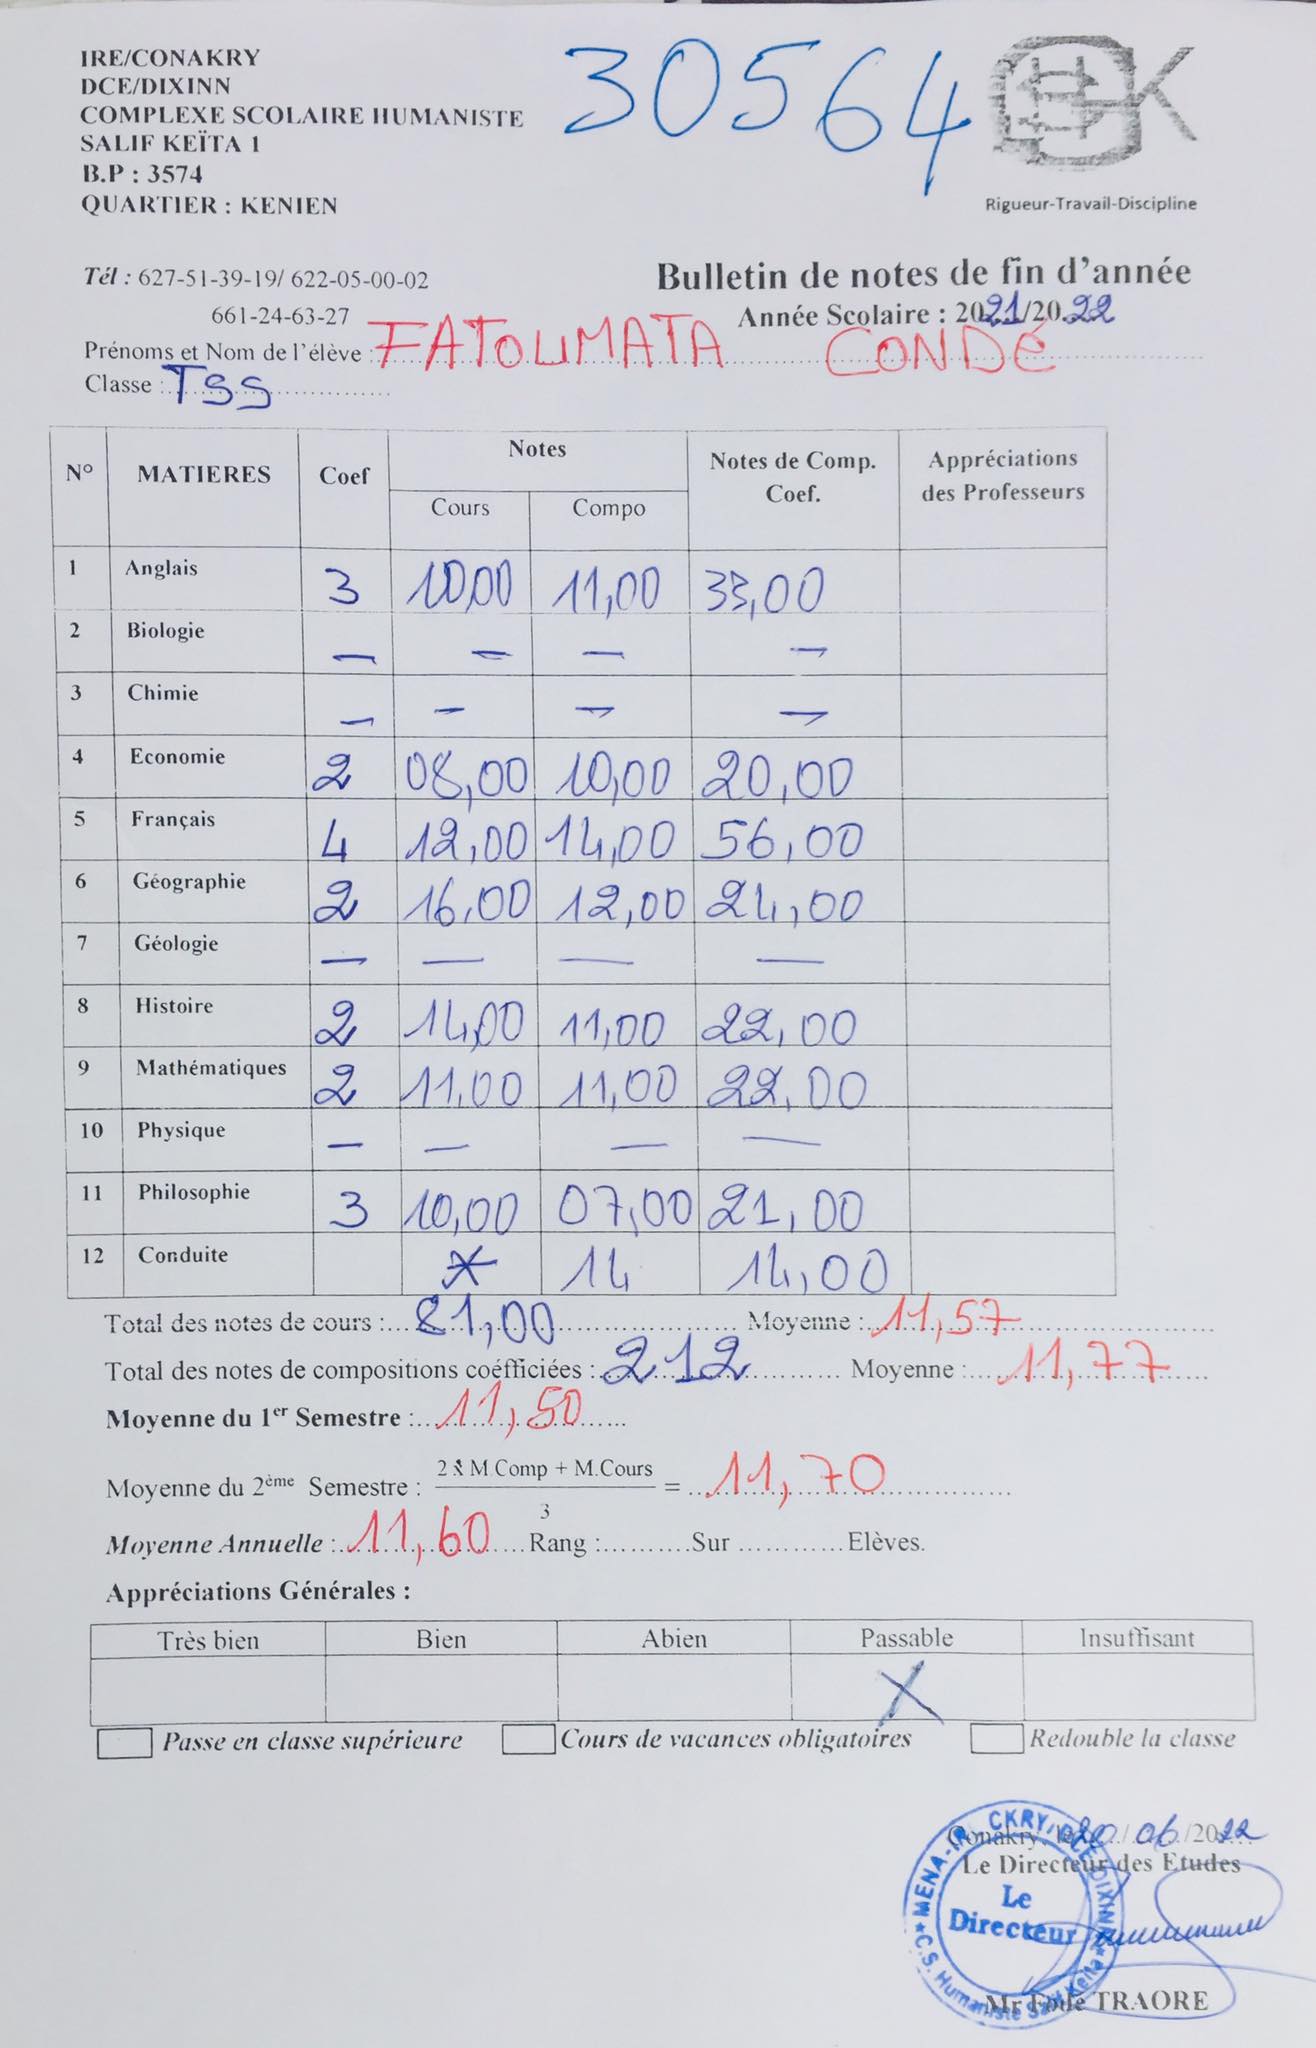 30564
IRE/CONAKRY
DCE/DIXINN
COMPLEXE SCOLAIRE HUMANISTE
SALIF KEÏTA 1
B.P : 3574
QUARTIER : KENIEN
Rigueur-Travail-Discipline
Tél : 627-51-39-19/ 622-05-00-02
661-24-63-27
Bulletin de notes de fin d'année
Année Scolaire : 2021/20.22
Prénoms et Nom de l'élève : FATOUMATA CONDÉ
Classe : TSS
N° MATIERES Coef Notes Notes de Comp. Coef. Appréciations des Professeurs
Cours Compo
1 Anglais 3 10,00 11,00 33,00
2 Biologie — — — —
3 Chimie — — — —
4 Economie 2 08,00 10,00 20,00
5 Français 4 12,00 14,00 56,00
6 Géographie 2 16,00 12,00 24,00
7 Géologie — — — —
8 Histoire 2 14,00 11,00 22,00
9 Mathématiques 2 11,00 11,00 22,00
10 Physique — — — —
11 Philosophie 3 10,00 07,00 21,00
12 Conduite * 14 14,00
Total des notes de cours : 81,00 Moyenne : 11,57
Total des notes de compositions coéfficiées : 212 Moyenne : 11,77
Moyenne du 1er Semestre : 11,50
Moyenne du 2ème Semestre : 2 x M.Comp + M.Cours / 3 = 11,70
Moyenne Annuelle : 11,60 Rang :..........Sur ............Elèves.
Appréciations Générales :
Très bien Bien Abien Passable Insuffisant
X
Passe en classe supérieure Cours de vacances obligatoires Redouble la classe
Conakry, le 20/06/2022
Le Directeur des Etudes
Le Directeur
C.S. Humaniste Salif Keita
Mr Fodé TRAORE